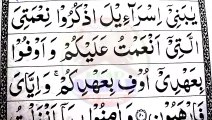 يٰبَنِيْٓ اِسْرَآءِيْلَ اذْكُرُوْا نِعْمَتِيَ
الَّتِيْٓ اَنْعَمْتُ عَلَيْكُمْ وَ اَوْفُوْا
بِعَهْدِيْٓ اُوْفِ بِعَهْدِكُمْ ۚ وَ اِيَّايَ
فَارْهَبُوْنِ ۝ وَ اٰمِنُوْا بِمَآ اَنْزَلْتُ